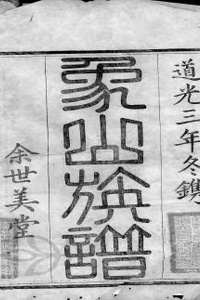 道光三年冬鐫
象山族譜
余世美堂